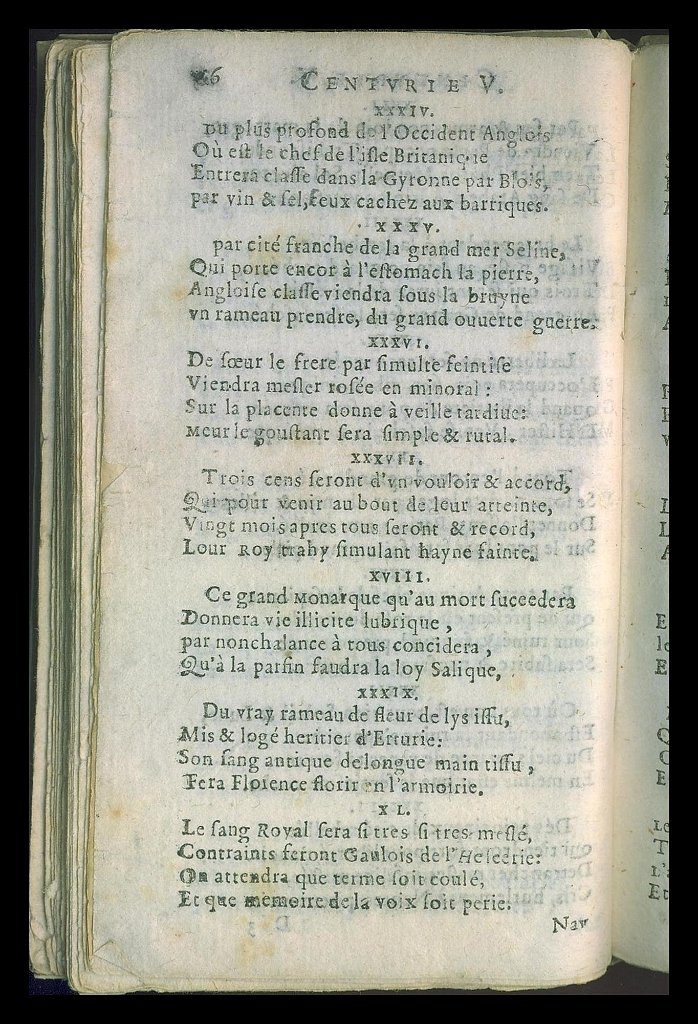 6 CENTVRIE V.
XXXIV.
Du plus profond de l'Occident Anglois
Où eſt le chef de l'iſle Britanique
Entrera claſſe dans la Gyronne par Blois,
par vin & ſel, feux cachez aux barriques.
XXXV.
par cité franche de la grand mer Seline,
Qui porte encor à l'eſtomach la pierre,
Angloiſe claſſe viendra ſous la bruyne
vn rameau prendre, du grand ouuerte guerre.
XXXVI.
De ſœur le frere par ſimulte feintiſe
Viendra meſler roſée en mineral :
Sur la placente donne à veille tardiue:
Meur le gouſtant ſera ſimple & rutal.
XXXVII.
Trois cens ſeront d'vn vouloir & accord,
Qui pour venir au bout de leur atteinte,
Vingt mois apres tous ſeront & record,
Lour Roy trahy ſimulant hayne fainte.
XVIII.
Ce grand Monarque qu'au mort ſuccedera
Donnera vie illicite lubrique,
par nonchalance à tous concidera,
Qu'à la parfin faudra la loy Salique,
XXXIX.
Du vray rameau de fleur de lys iſſu,
Mis & logé heritier d'Etturie:
Son ſang antique de longue main tiſſu,
Fera Florence florir en l'armoirie.
XL.
Le ſang Royal ſera ſi tres ſi tres meſlé,
Contraints ſeront Gaulois de l'Heſeerie:
On attendra que terme ſoit coulé,
Et que memoire de la voix ſoit perie.
Nav